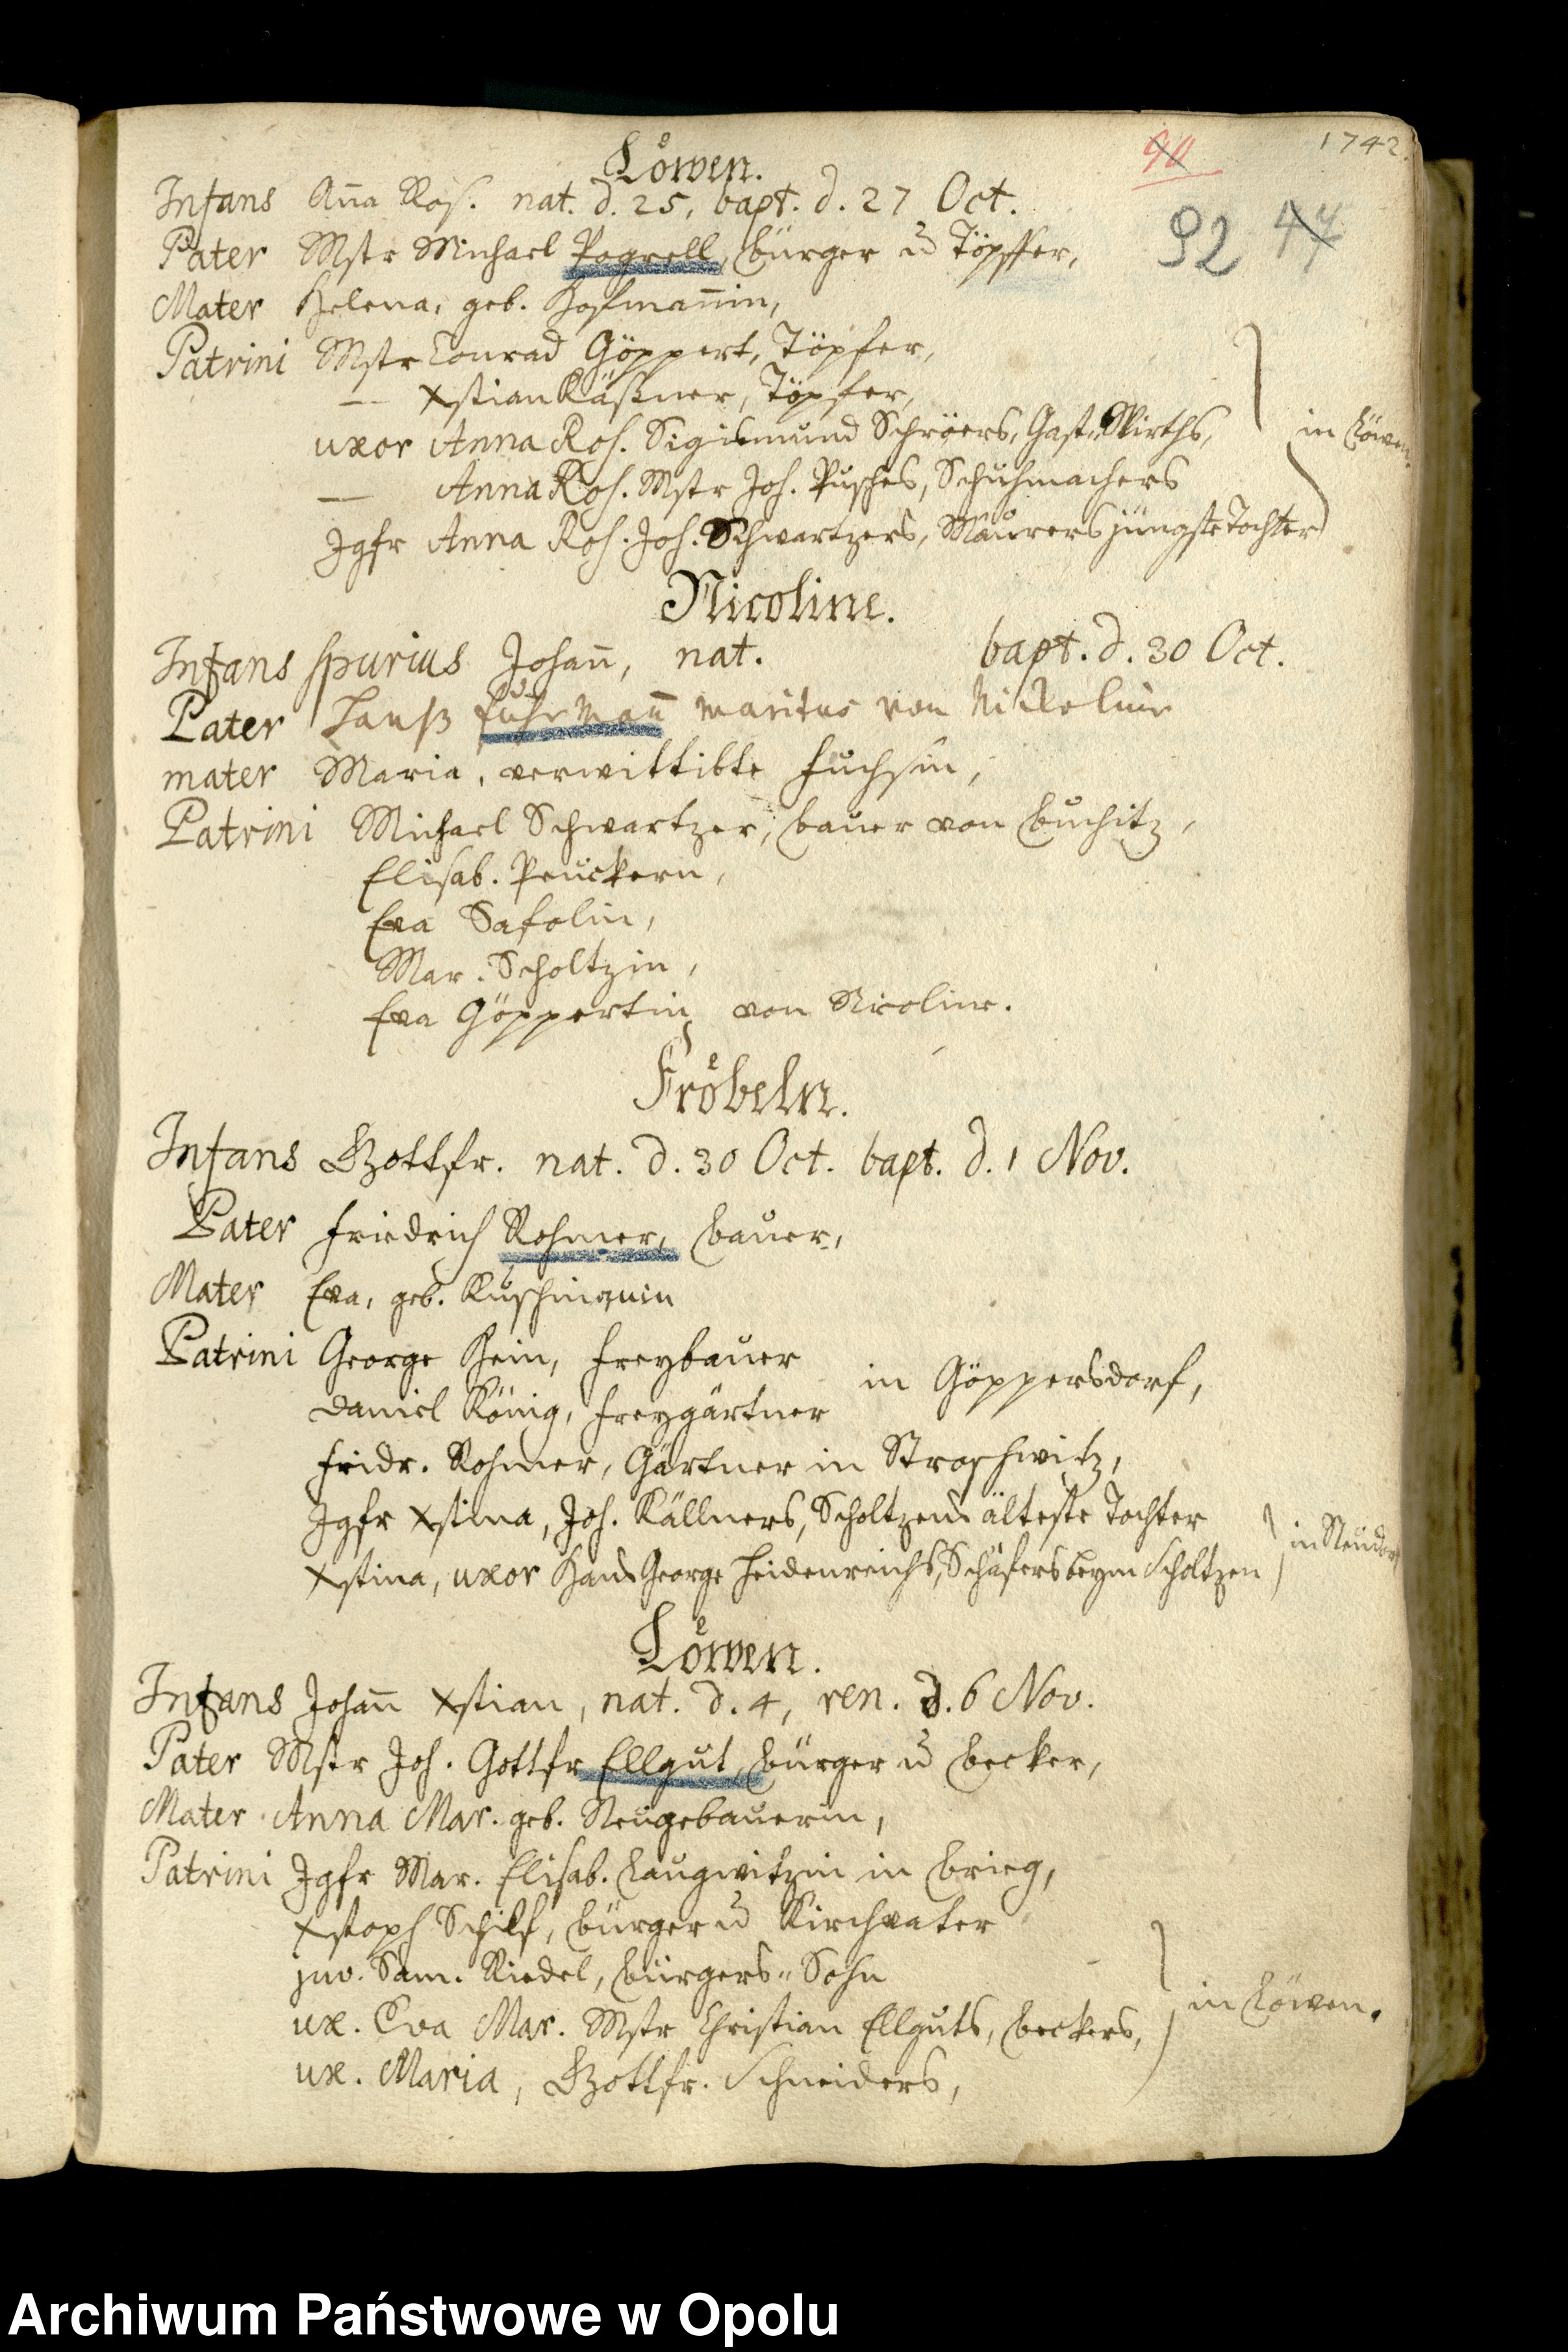 1742.
92 44
Löwen.
Infans Aña Ros. nat. d. 25, bapt. d. 27 Oct.
Pater Mstr Michael Pogrell, Bürger u Töpffer,
Mater Helena, geb. Hofmañin,
Patrini Mstr Conrad Göppert, Töpfer,
— Xstian Käßner, Töpfer,
uxor Anna Ros. Sigismund Schröers, Gast-Wirths,
— Anna Ros. Mstr Joh. Pusches, Schuhmachers
in Löwen.
Jgfr Anna Ros. Joh. Schwartzers, Maurers jüngste Tochter
Nicoline.
Infans spurius Johañ, nat. bapt. d. 30 Oct.
Pater Hanß Fuhrmañ maritus von Nickoline
mater Maria, verwittibte Fuchsin,
Patrini Michael Schwartzer, Bauer von Buchitz,
Elisab. Peuckern,
Eva Safolin,
Mar. Scholtzin,
Eva Göppertin, von Nicoline.
Fröbeln.
Infans Gottfr. nat. d. 30 Oct. bapt. d. 1 Nov.
Pater Friedrich Rohmer, Bauer,
Mater Eva, geb.
Patrini George Hein, Freybauer
Daniel König, Freygärtner in Göppersdorf,
Fridr. Rohmer, Gärtner in Stroschwitz,
Jgfr Xstina, Joh. Källners, Scholtzens älteste Tochter
Xstina, uxor Hans George Heidenreichs, Schäfers beym Scholtzen
in Neudorf
Löwen.
Infans Johañ Xstian, nat. d. 4, ren. d. 6 Nov.
Pater Mstr Joh. Gottfr Ellgut, Bürger u Becker,
Mater Anna Mar. geb. Neugebauerin,
Patrini Jgfr Mar. Elisab. Laugwitzin in Brieg,
Xstoph Schilf, Bürger u Kirchvater
juv. Sam. Riedel, Bürgers-Sohn
ux. Eva Mar. Mstr Christian Ellguts, Beckers,
in Löwen.
ux. Maria, Gottfr. Schneiders,
Archiwum Państwowe w Opolu